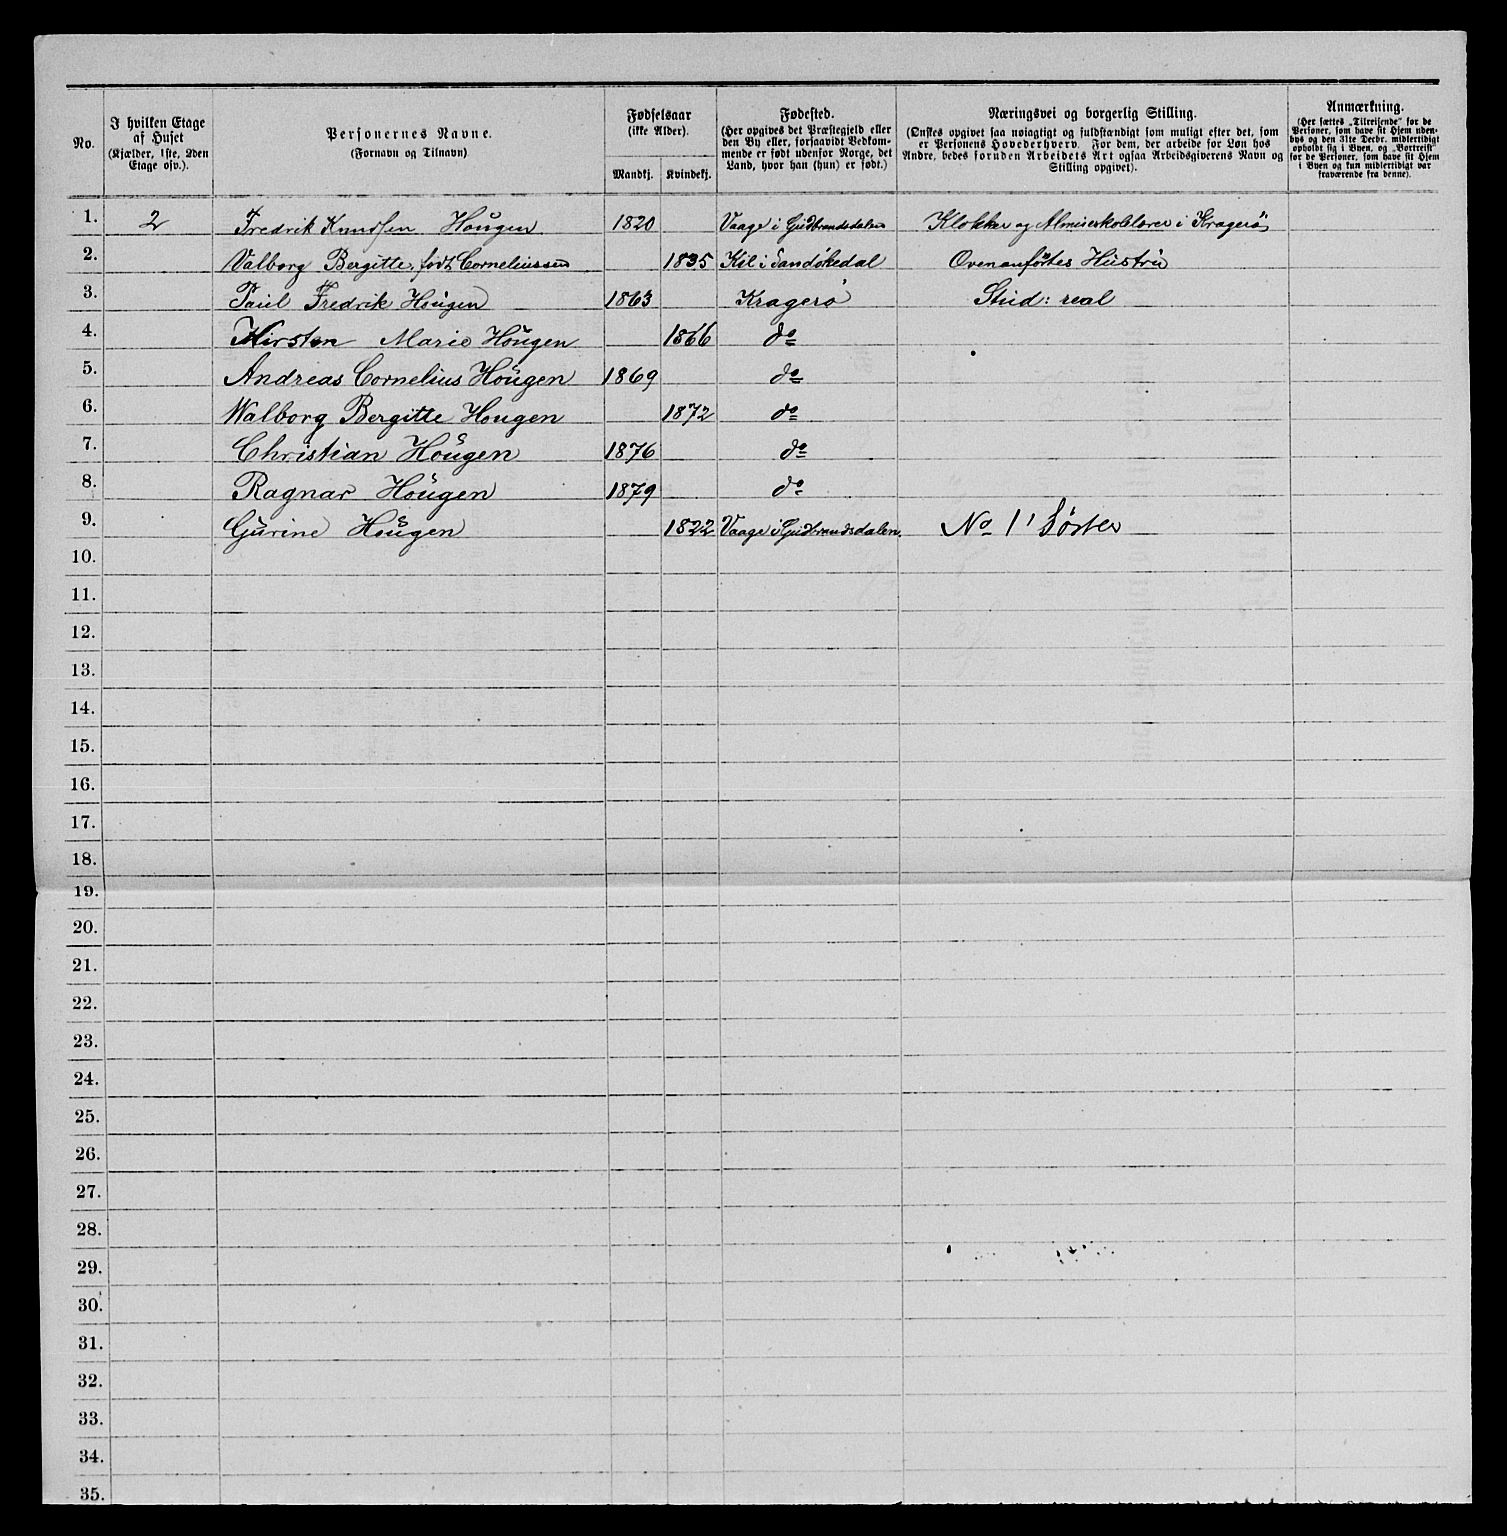 No.
I hvilken Etage af Huset (Kjælder, 1ste, 2den Etage osv.).
Personernes Navne. (Fornavn og Tilnavn)
Fødselsaar (ikke Alder).
Mandkj. Kvindekj.
Fødested. (Her opgives det Præstegjeld eller den By eller, forsaavidt Vedkommende er født udenfor Norge, det Land, hvor han (hun) er født.)
Næringsvei og borgerlig Stilling. (Ønskes opgivet saa nøiagtigt og fuldstændigt som muligt efter det, som er Personens Hovederhverv. For dem, der arbeide for Løn hos Andre, bedes foruden Arbeidets Art ogsaa Arbeidsgiverens Navn og Stilling opgivet).
Anmærkning. (Her sættes „Tilreisende" for de Personer, som have sit Hjem udenbys og den 31te Decbr. midlertidigt opholdt sig i Byen, og „Bortreist" for de Personer, som have sit Hjem i Byen og kun midlertidigt var fraværende fra denne).
1. 2 Fredrik Knudsen Hougen 1820 Vaage i Gudbrandsdalen Klokker og Almueskolelærer i Kragerø
2. Valborg Bergitte, født Corneliussen 1835 Kil i Sandøkedal Ovenanførtes Hustru
3. Paul Fredrik Hougen 1863 Kragerø Stud: real
4. Kirsten Marie Hougen 1866 do
5. Andreas Cornelius Hougen 1869 do
6. Walborg Bergitte Hougen 1872 do
7. Christian Hougen 1876 do
8. Ragnar Hougen 1879 do
9. Gurine Hougen 1822 Vaage i Gudbrandsdalen. No 1' Søster
10.
11.
12.
13.
14.
15.
16.
17.
18.
19.
20.
21.
22.
23.
24.
25.
26.
27.
28.
29.
30.
31.
32.
33.
34.
35.